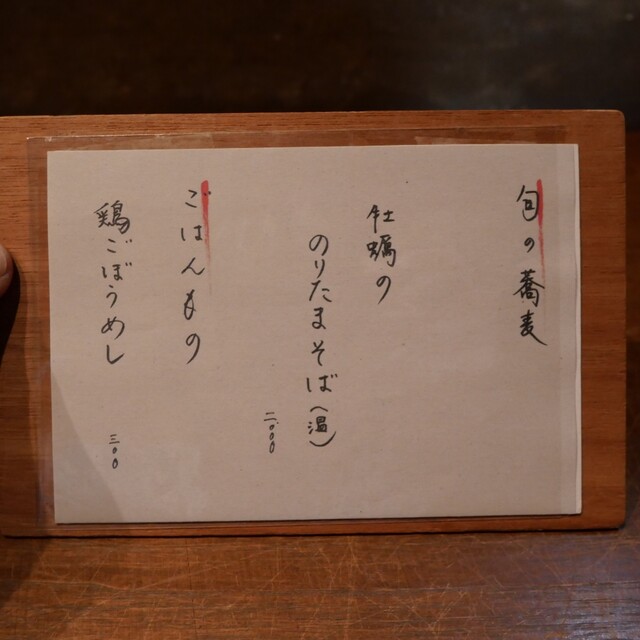 旬の蕎麦
牡蠣の
のりたまそば(温)
二〇〇〇
ごはんもの
鶏ごぼうめし
三〇〇